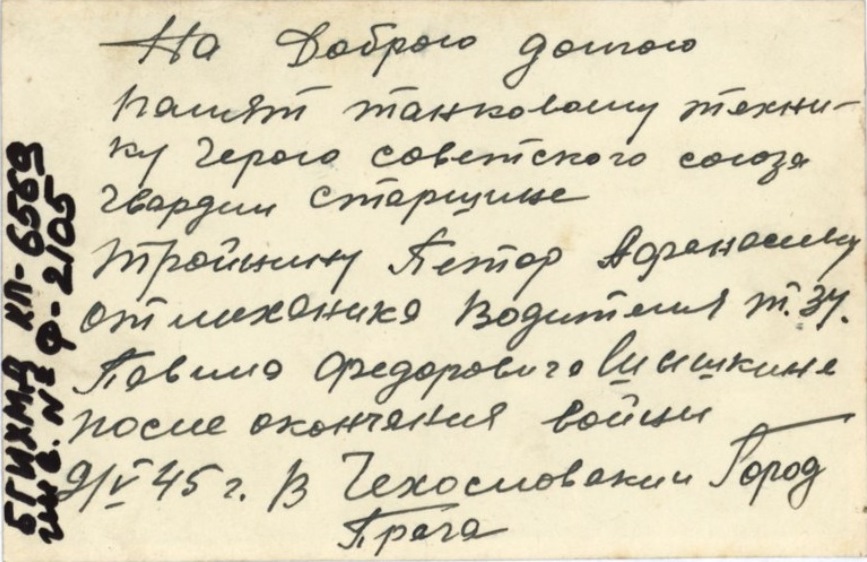 На Доброю долгою
памят танковому техни-
ку герою советского союза
гвардии старщине
Тройнину Петор Афанасиеву
от механика Водителия т. 34.
Павила Федоровича Шишкина
после окончания войни
9/V 45 г. В Чехословакии Город
Прага
БГИХМД КП-6569
инв. № Ф-2105